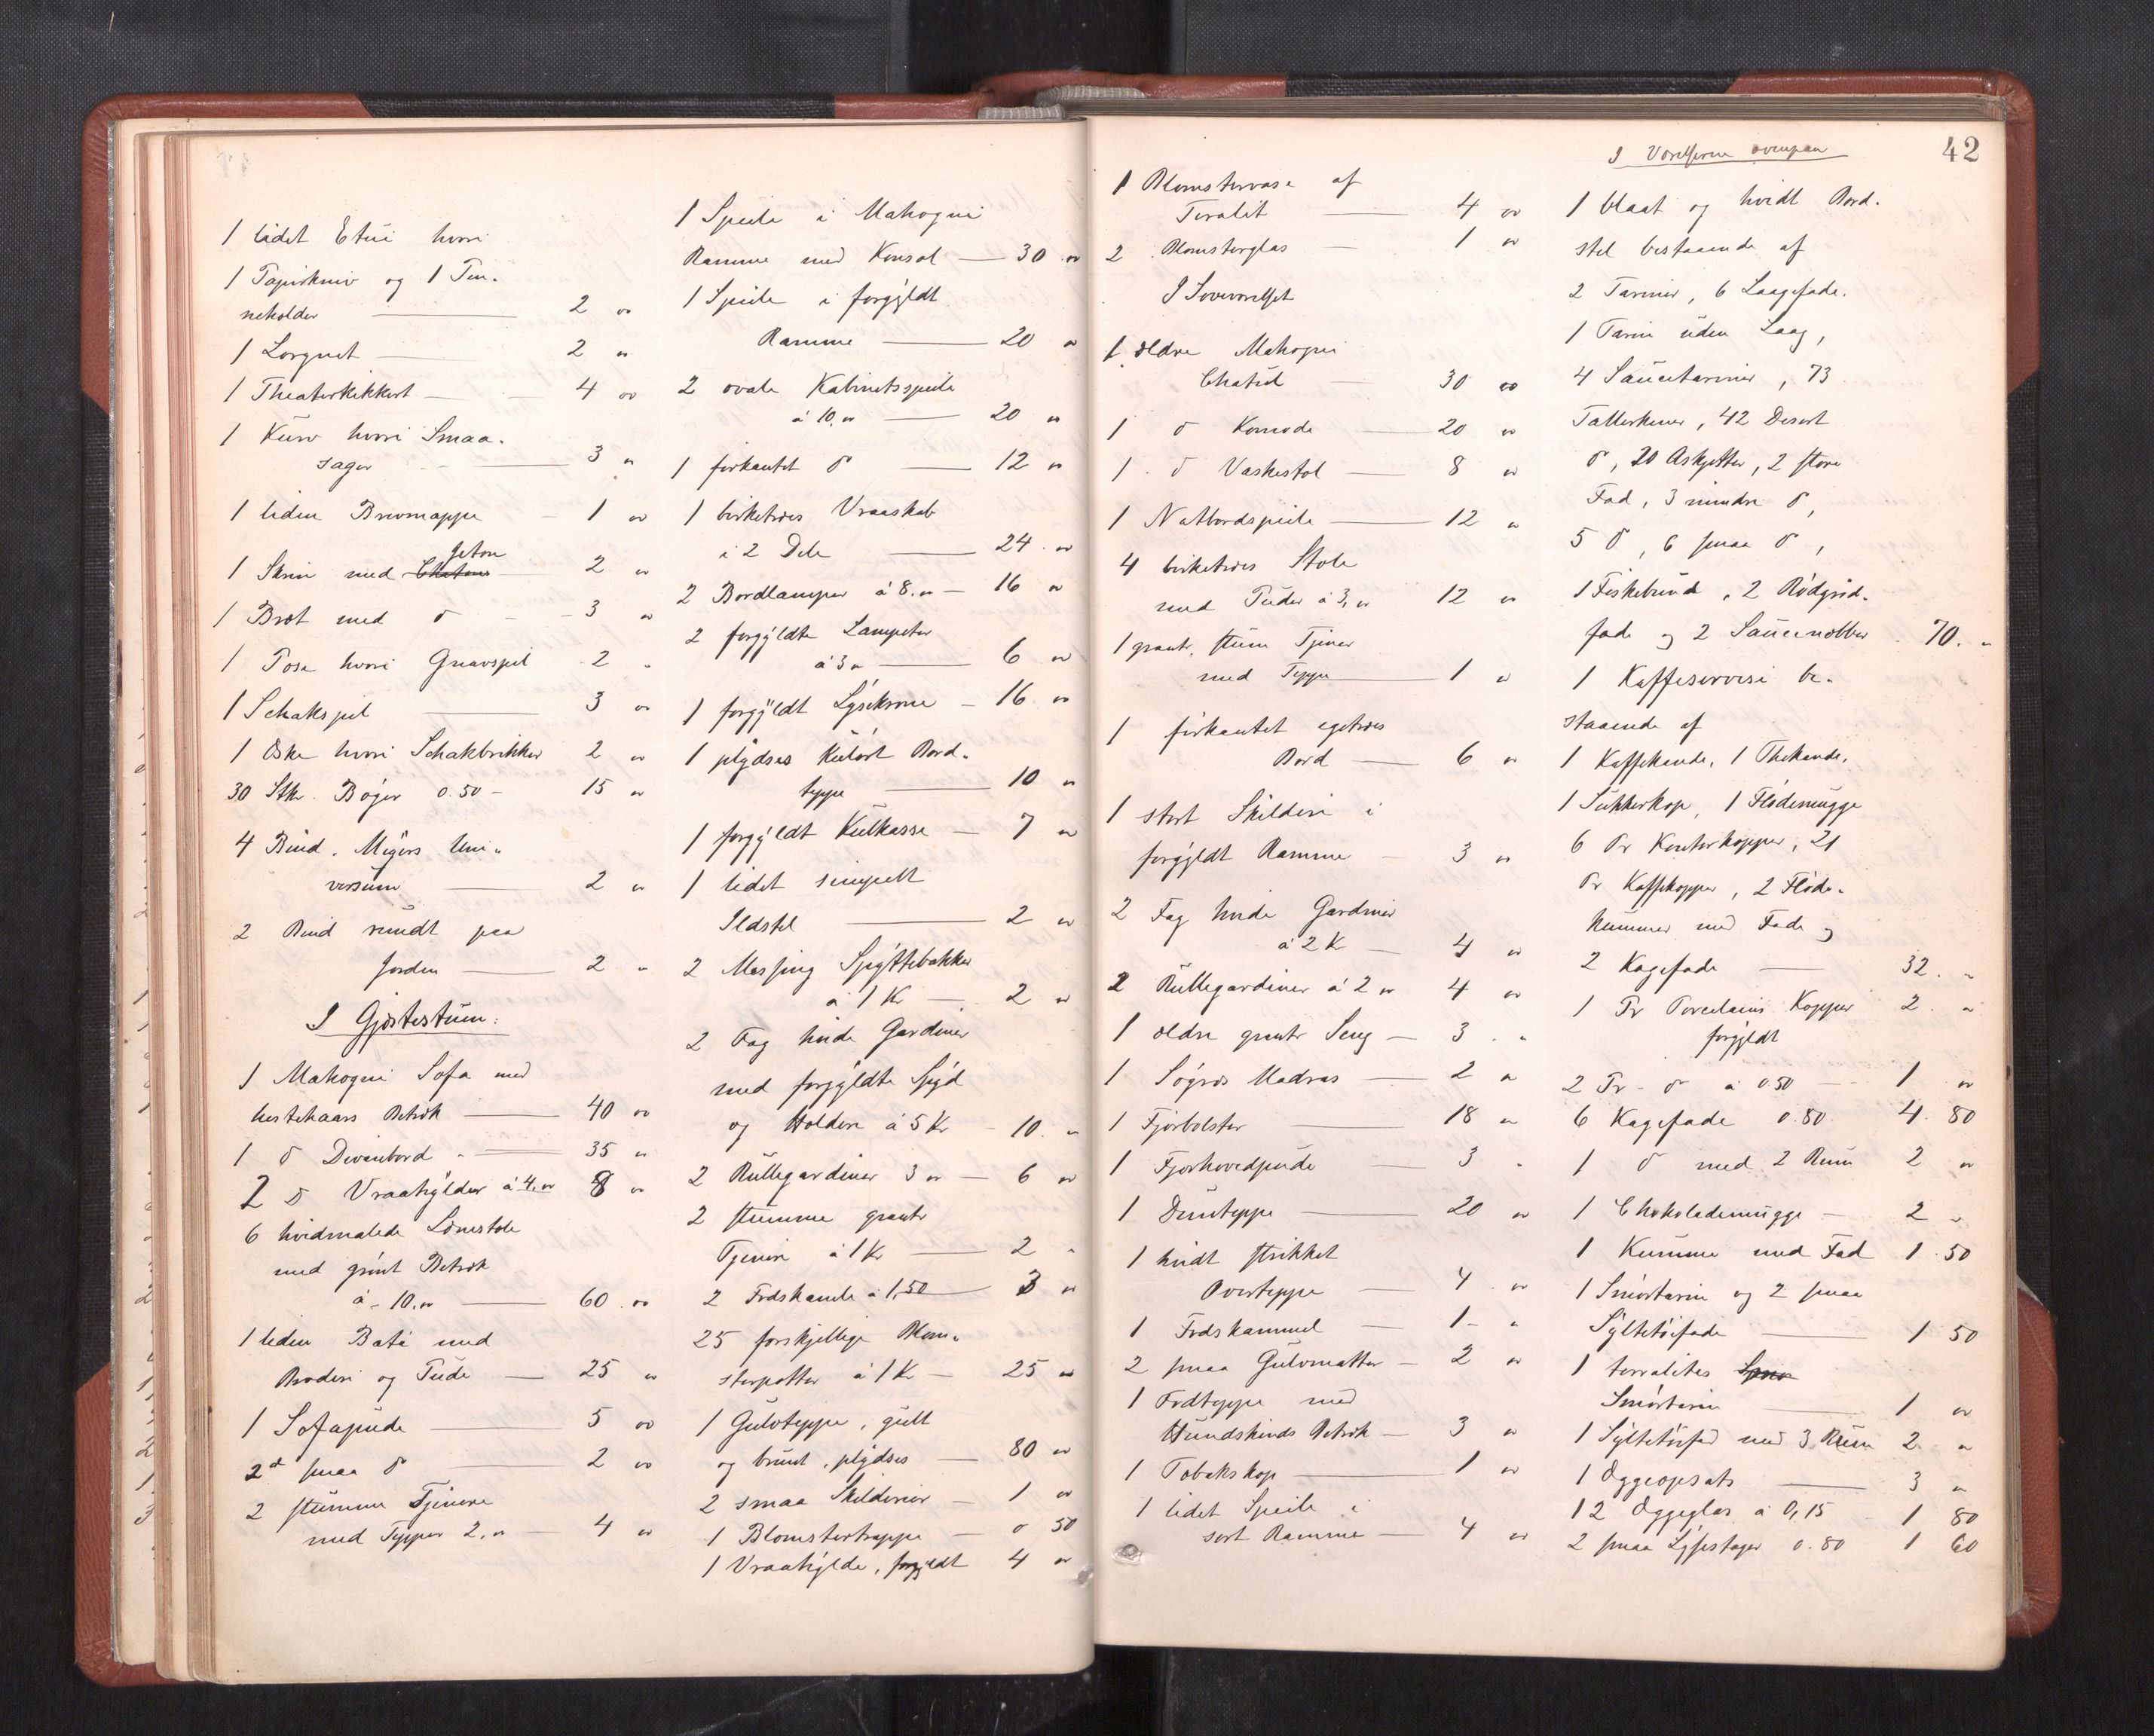 1 lidet Etui hvori
1 Papirkniv og 1 Pen-
neholder — 2 "
1 Lorgnet — 2 "
1 Theaterkikkert — 4 "
1 Kurv hvori Smaa-
sager — 3 "
1 liden Brevmappe — 1 "
Jetons
1 Skrin med Chatons 2 "
1 Bræt med do - 3 "
1 Pose hvori Gnavspil 2 "
1 Schakspil — 3 "
1 Æske hvori Schakbrikker 2 "
30 Stk. Bøger 0.50 - 15 "
4 Bind. Meyers Uni-
versum — 2 "
2 Bind rundt paa
Jorden — 2 "
I Gjæstestuen:
1 Mahogni Sofa med
hestehaars Betræk — 40 "
1 do Divanbord — 35 "
2 do Vraahylder á 4. " 8 "
6 hvidmalede Lænestole
med grønt Betræk
á 10. " — 60 "
1 liden Baté med
Broderi og Pude — 25 "
1 Sofapude — 5 "
2 smaa do — 2 "
2 stumme Tjenere
med Tepper 2. " — 4 "
1 Speile i Mahogni
Ramme med Konsol — 30 "
1 Speile i forgyldt
Ramme — 20 "
2 ovale Kabinetsspeile
á 10. " — 20 "
1 firkantet do — 12 "
1 birketræes Vraaskab
i 2 Dele — 24 "
2 Bordlamper á 8. " — 16 "
2 forgyldte Lampetter
á 3 " — 6 "
1 forgyldt Lysekrone — 16 "
1 plydses kulørt Bord-
teppe — 10 "
1 forgyldt Kulkasse — 7 "
1 lidet simpelt
Ildstel — 2 "
2 Messing Spyttebakker
á 1 Kr — 2 "
2 Fag hvide Gardiner
med forgyldte Spyd
og Holdere á 5 Kr - 10. "
2 Rullegardiner 3 " — 6 "
2 stumme grantr
Tjenere á 1 Kr — 2 "
2 Fodskamle á 1,50 — 3 "
25 forskjellige Blom-
sterpotter á 1 Kr — 25 "
1 Gulvteppe, gult
og brunt, plydses — 80 "
2 smaa Skilderier — 1 "
1 Blomstertrappe — 0 50
1 Vraahylde, forgyldt 4 "
42
1 Blomstervase af
Teralit — 4 "
2 Blomsterglas — 1 "
I Soveværelset
1 ældre Mahogni
Chatul 30 "
1 do Komode — 20 "
1 do Vaskestol — 8 "
1 Natbordspeile — 12 "
4 birketræes Stole
med Puder á 3, " 12 "
1 grantr. stum Tjener
med Teppe — 1 "
1 firkantet egetræes
Bord — 6 "
1 stort Skilderi i
forgyldt Ramme — 3 "
2 Fag hvide Gardiner
á 2 K — 4 "
2 Rullegardiner á 2 " 4 "
1 ældre grantr Seng — 3 "
1 Søgræs Madras — 2 "
1 Fjærbolster — 18 "
1 Fjærhovedpude — 3 "
1 Dunteppe — 20 "
1 hvidt strikket
Overteppe — 4 "
1 Fodskammel — 1 "
2 smaa Gulvmatter — 2 "
1 Fodteppe med
Hundskinds Betræk — 3 "
1 Tobakskop — 1 "
1 lidet Speile i
sort Ramme — 4 "
I Værelserne ovenpaa
1 blaat og hvidt Bord-
stel bestaaende af
2 Tariner, 6 Laagefade.
1 Tarin uden Laag,
4 Saucetariner, 73
Tallerkener, 42 Desert
do, 20 Asketter, 2 store
Fad, 3 mindre do,
5 do, 6 smaa do,
1 Fiskebund, 2 Rødgrød-
fade og 2 Saucenebber 70. "
1 Kaffeservise be-
staaende af
1 Kaffekande, 1 Thekande,
1 Sukkerkop, 1 Flødemugge
6 Pr Kontorkopper, 21
Pr Kaffekopper, 2 Fløde-
kummer med Fade og
2 Kagefade — 32. "
1 Pr Porcelains Kopper 2. "
forgyldt
2 Pr - do á 0.50 — 1 "
6 Kagefade 0.80 4. 80
1 do med 2 Rum 2 "
1 Chokolademugge — 2 "
1 Kumme med Fad 1. 50
1 Smørtarin og 2 smaa
Syltetøifade — 1 50
1 terralites Smør
Smørtarin — 1 "
1 Syltetøifad med 3 Rum 2 "
1 Æggeopsats — 3 "
12 Æggeglas á 0,15 1 80
2 smaa Lysestager 0.80 1 60